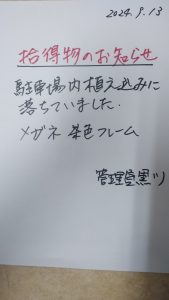 2024.9.13
拾得物のお知らせ
駐車場内植え込みに
落ちていました.
メガネ 茶色フレーム
管理室